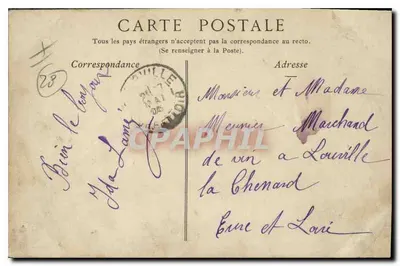 CARTE POSTALE
Tous les pays étrangers n'acceptent pas la correspondance au recto.
(Se renseigner à la Poste).
Correspondance
Adresse
28
Bien le bonjour
Ida
Monsieur et Madame
Meunier Marchand
de vin a Louville
la Chenard
Eure et Loir